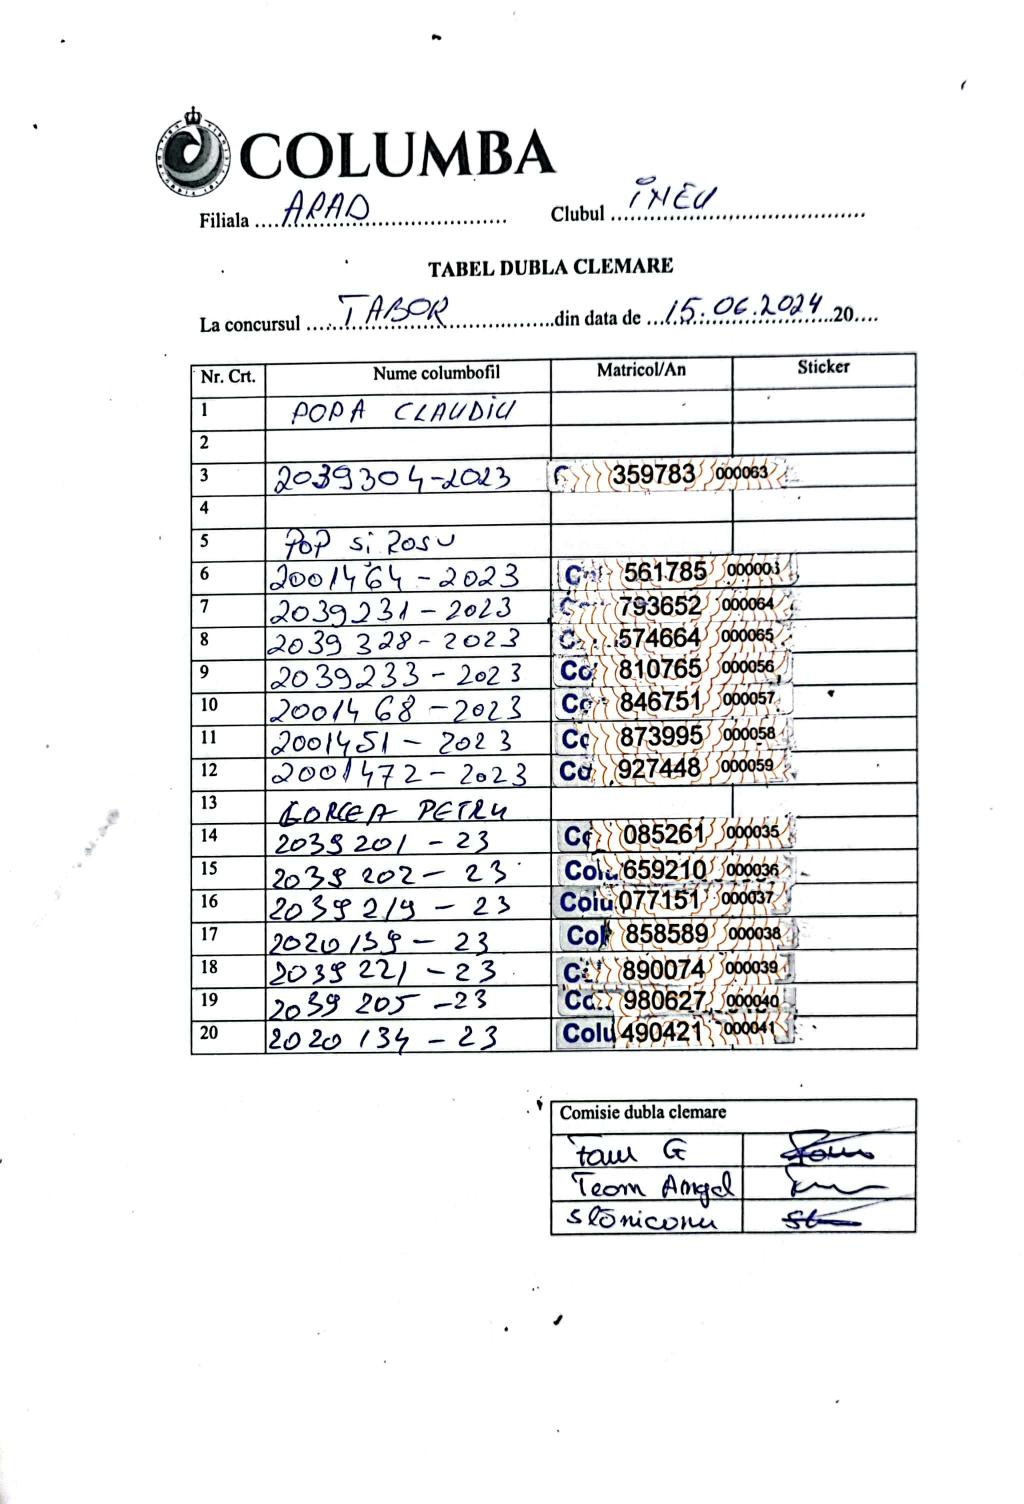 COLUMBA
Filiala .... ARAD .................... Clubul .... INEU ....................
TABEL DUBLA CLEMARE
La concursul .... TABOR ....................din data de ... 15.06.2024 ...20....
Nr. Crt. Nume columbofil Matricol/An Sticker
1 POPA CLAUDIU
2
3 2039304-2023 359783 000063
4
5 POP si ROSU
6 2001464-2023 561785 000003
7 2039231-2023 793652 000064
8 2039328-2023 574664 000065
9 2039233-2023 Col 810765 000056
10 2001468-2023 Co 846751 000057
11 2001451-2023 Cc 873995 000058
12 2001472-2023 Co 927448 000059
13 GORCEA PETRU
14 2039201-23 Co 085261 000035
15 2039202-23 Colu 659210 000036
16 2039219-23 Colu 077151 000037
17 2020139-23 Col 858589 000038
18 2039221-23 890074 000039
19 2039205-23 980627 000040
20 2020134-23 Colu 490421 000041
Comisie dubla clemare
Faur G
Team Angel
Slăniconu